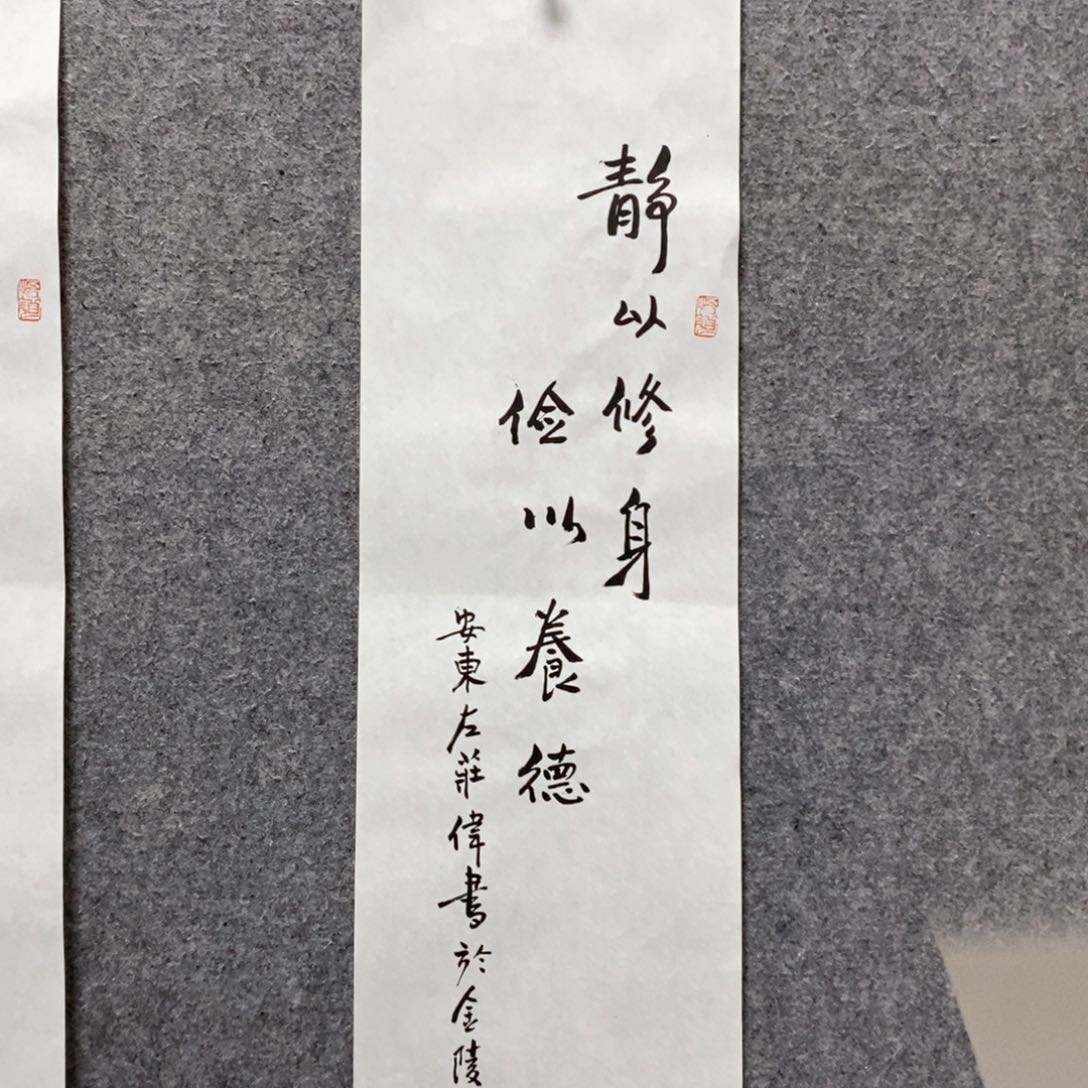 静以修身
俭以養德
安東左莊偉書於金陵